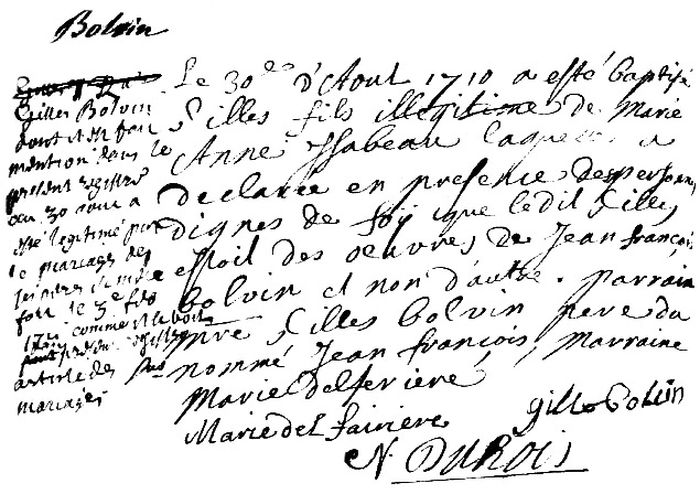 Bolvin
Gilles Bolvin
dont il est fait
mention dans le
present registre
au 30 aout a
esté legitimé par
le mariage de
fait le 3e
comme il se voit
article des
mariages
Le 30e d'Aout 1710 a esté baptisé
Gilles fils illegitime de Marie
Anne Isabeau laquelle a
declarée en presence des personnes
dignes de foy que ledit Gilles
estoit des oeuvres de Jean françois
bolvin et non d'autre. parrain
Mre Gilles bolvin pere du
nommé Jean françois, Marraine
Marie delferiere,
Marie del fairiere
gille bolvin
N DUROIS